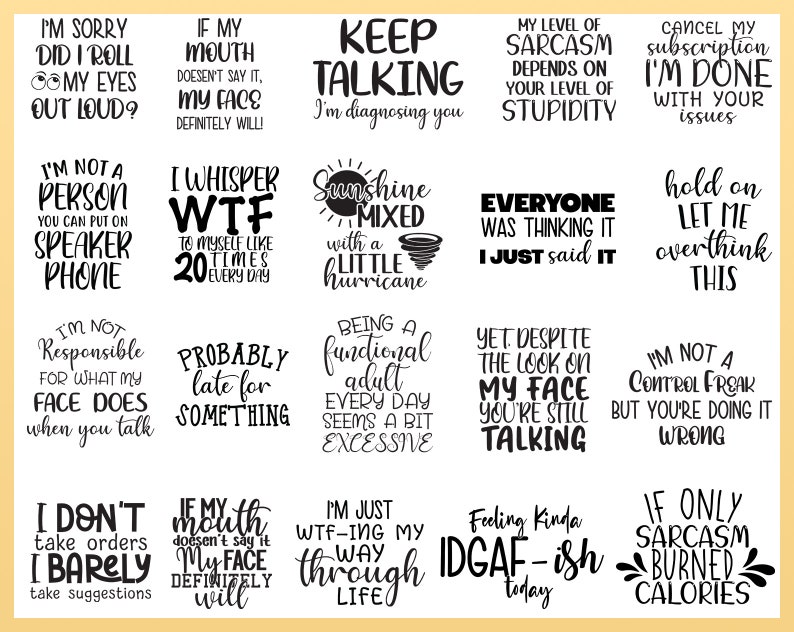 I'M SORRY
DID I ROLL
MY EYES
OUT LOUD?
IF MY
MOUTH
DOESN'T SAY IT,
MY FACE
DEFINITELY WILL!
KEEP
TALKING
I'm diagnosing you
MY LEVEL OF
SARCASM
DEPENDS ON
YOUR LEVEL OF
STUPIDITY
CANCEL MY
subscription
I'M DONE
WITH YOUR
issues
I'M NOT A
PERSON
YOU CAN PUT ON
SPEAKER
PHONE
I WHISPER
WTF
TO MYSELF LIKE
20 TIMES
EVERY DAY
Sunshine
MIXED
with a
LITTLE
hurricane
EVERYONE
WAS THINKING IT
I JUST said IT
hold on
LET ME
overthink
THIS
I'M NOT
Responsible
FOR WHAT MY
FACE DOES
when you talk
PROBABLY
late for
SOMETHING
BEING A
functional
adult
EVERY DAY
SEEMS A BIT
EXCESSIVE
YET, DESPITE
THE LOOK ON
MY FACE
YOU'RE STILL
TALKING
I'M NOT A
CONTROL FREAK
BUT YOU'RE DOING IT
WRONG
I DON'T
take orders
I BARELY
take suggestions
IF MY
mouth
doesn't say it
My FACE
DEFINITELY
will
I'M JUST
WTF-ING MY
WAY
through
LIFE
Feeling Kinda
IDGAF-ish
today
IF ONLY
SARCASM
BURNED
CALORIES